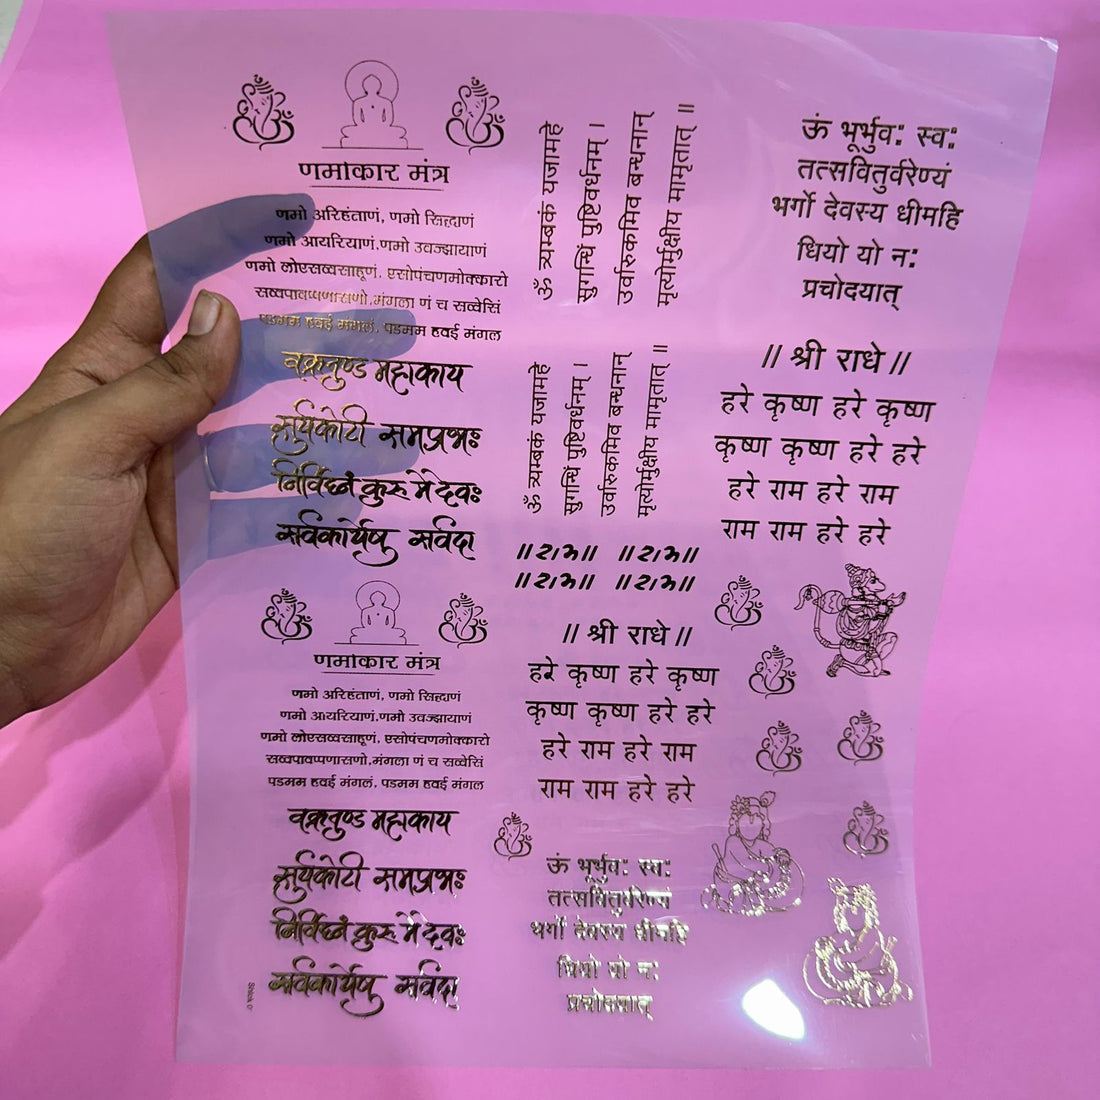 णमोकार मंत्र
णमो अरिहंताणं, णमो सिद्धाणं
णमो आयरियाणं,णमो उवज्झायाणं
णमो लोएसव्वसाहूणं, एसोपंचणमोक्कारो
सव्वपावप्पणासणो,मंगला णं च सव्वेसिं
पडमम हवई मंगलं, पडमम हवई मंगल
वक्रतुण्ड महाकाय
सुर्यकोटी समप्रभः
निर्विघ्नं कुरु मे देवः
सर्वकार्येषु सर्वदा
णमोकार मंत्र
णमो अरिहंताणं, णमो सिद्धाणं
णमो आयरियाणं,णमो उवज्झायाणं
णमो लोएसव्वसाहूणं, एसोपंचणमोक्कारो
सव्वपावप्पणासणो,मंगला णं च सव्वेसिं
पडमम हवई मंगलं, पडमम हवई मंगल
वक्रतुण्ड महाकाय
सुर्यकोटी समप्रभः
निर्विघ्नं कुरु मे देवः
सर्वकार्येषु सर्वदा
ॐ त्र्यम्बकं यजामहे
सुगन्धिं पुष्टिवर्धनम् ।
उर्वारुकमिव बन्धनान्
मृत्योर्मुक्षीय मामृतात् ॥
ॐ त्र्यम्बकं यजामहे
सुगन्धिं पुष्टिवर्धनम् ।
उर्वारुकमिव बन्धनान्
मृत्योर्मुक्षीय मामृतात् ॥
॥राम॥ ॥राम॥
॥राम॥ ॥राम॥
// श्री राधे //
हरे कृष्ण हरे कृष्ण
कृष्ण कृष्ण हरे हरे
हरे राम हरे राम
राम राम हरे हरे
ऊं भूर्भुवः स्वः
तत्सवितुर्वरेण्यं
भर्गो देवस्य धीमहि
धियो यो नः
प्रचोदयात्
ऊं भूर्भुवः स्वः
तत्सवितुर्वरेण्यं
भर्गो देवस्य धीमहि
धियो यो नः
प्रचोदयात्
// श्री राधे //
हरे कृष्ण हरे कृष्ण
कृष्ण कृष्ण हरे हरे
हरे राम हरे राम
राम राम हरे हरे